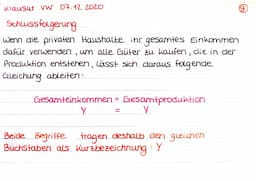 Klausur VW 07.12.2020
Schlussfolgerung
Wenn die privaten Haushalte ihr gesamtes Einkommen
dafür verwenden, um alle Güter zu kaufen, die in der
Produktion entstehen, lässt sich daraus folgende
Gleichung ableiten:
Gesamteinkommen = Gesamtproduktion
Y = Y
Beide Begriffe tragen deshalb den gleichen
Buchstaben als Kurzbezeichnung: Y